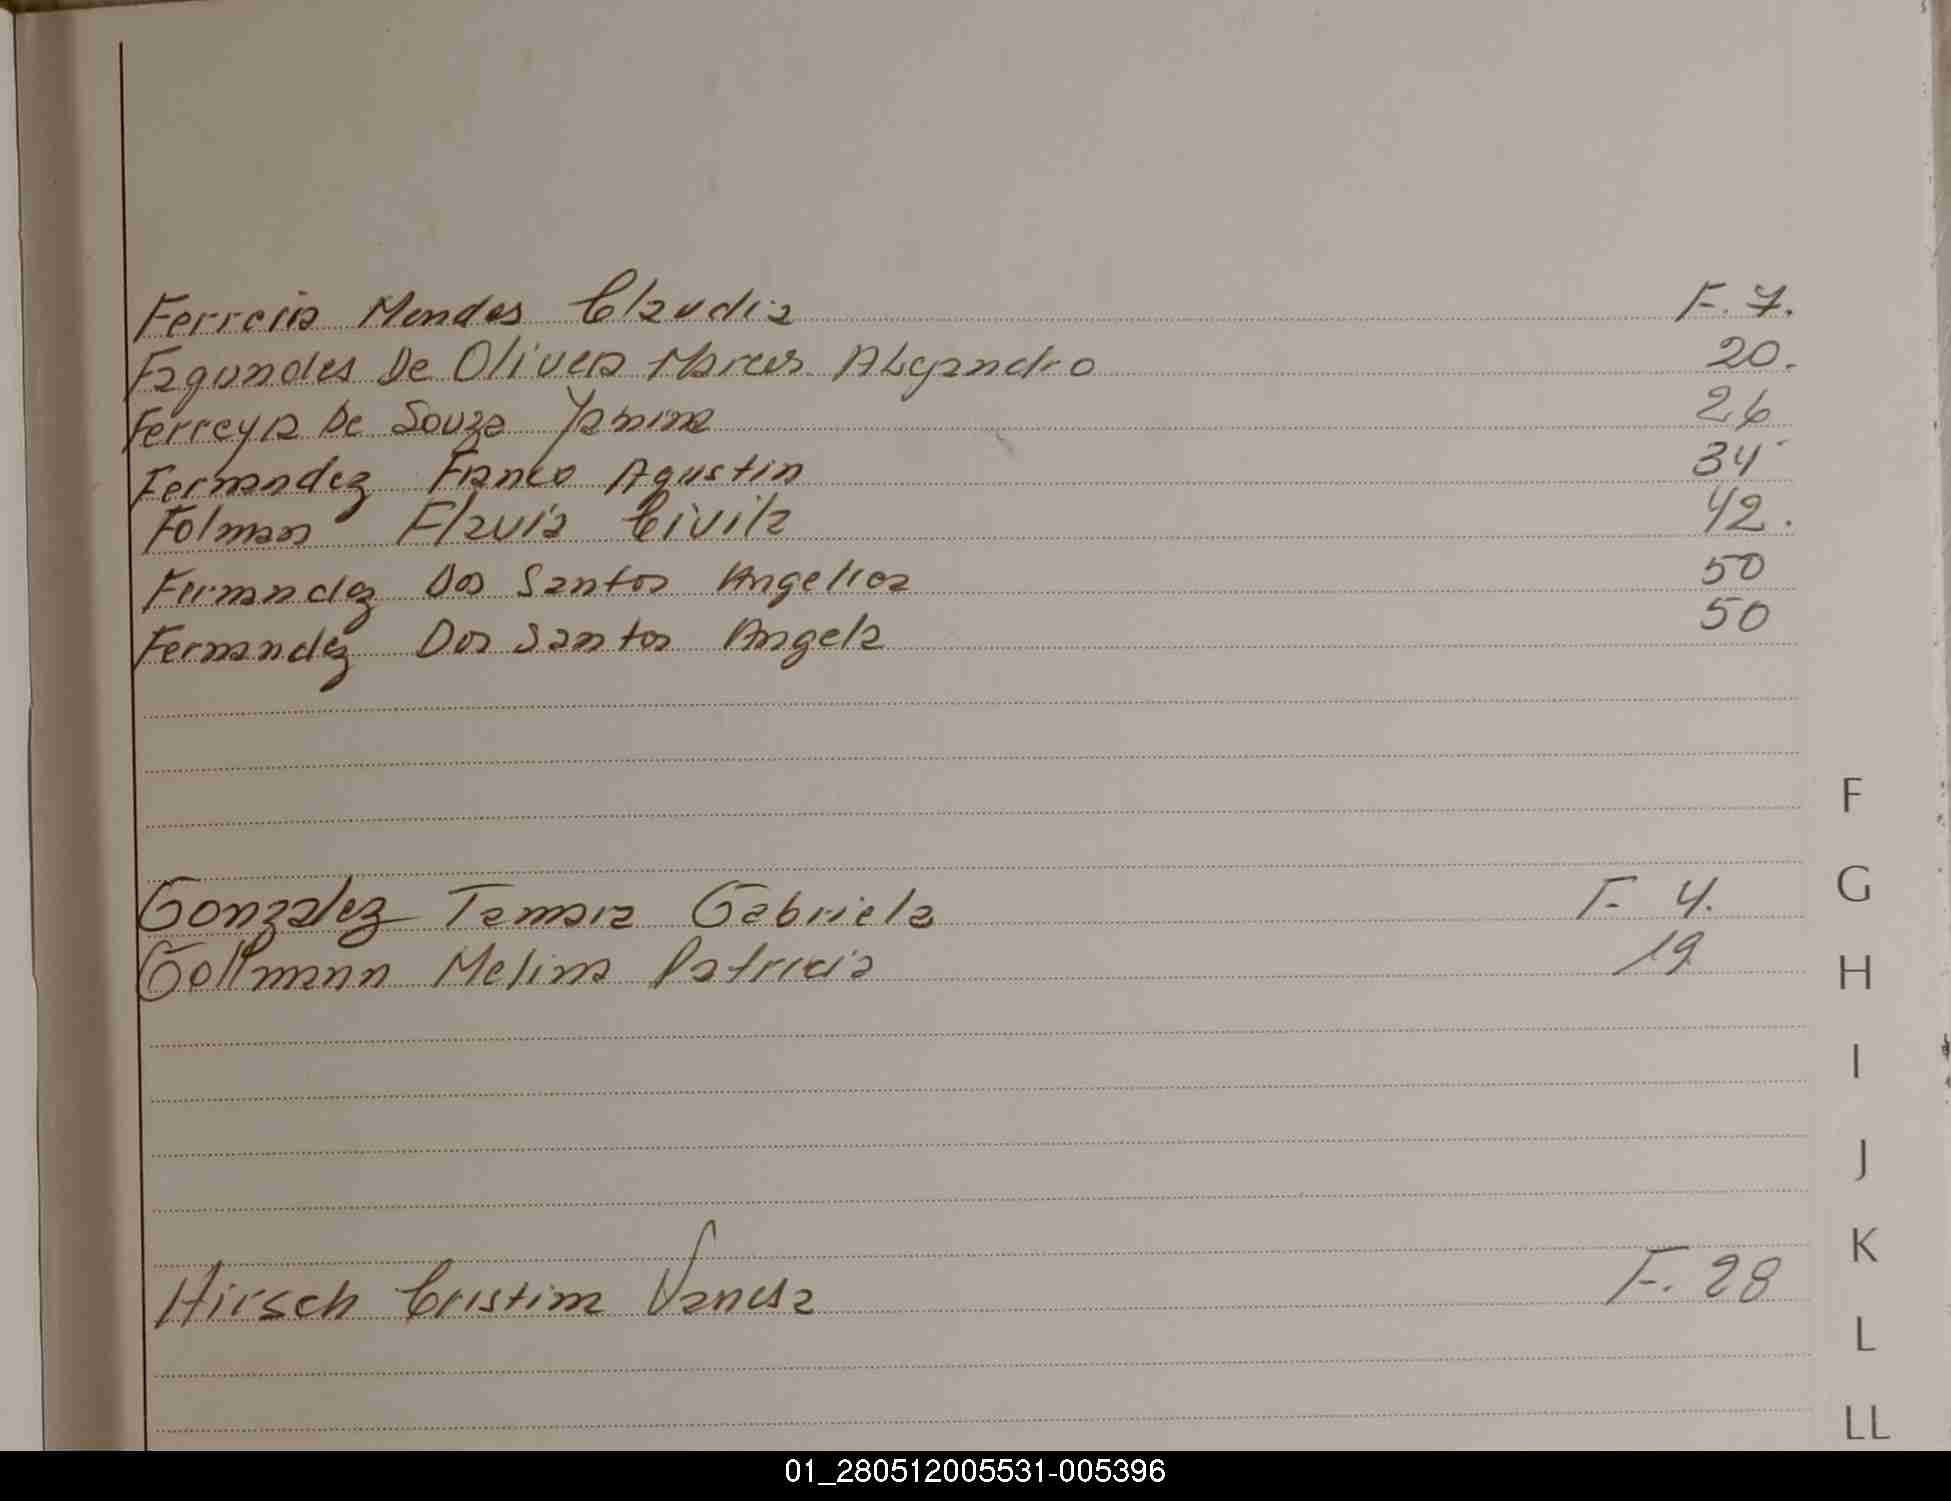 Ferreira Mendes Claudia F. 7.
Fagundes De Olivera Marcos Alejandro 20.
Ferreyra De Souza Yanina 26
Fernandez Franco Agustin 34
Folman Flavia Civila 42.
Fernandez Dos Santos Angelica 50
Fernandez Dos Santos Angela 50
F
Gonzalez Tamara Gabriela F. 4.
G
Gollmann Melina Patricia 19
H
I
J
K
Hirsch Cristina Vanesa F. 28
L
LL
01_280512005531-005396